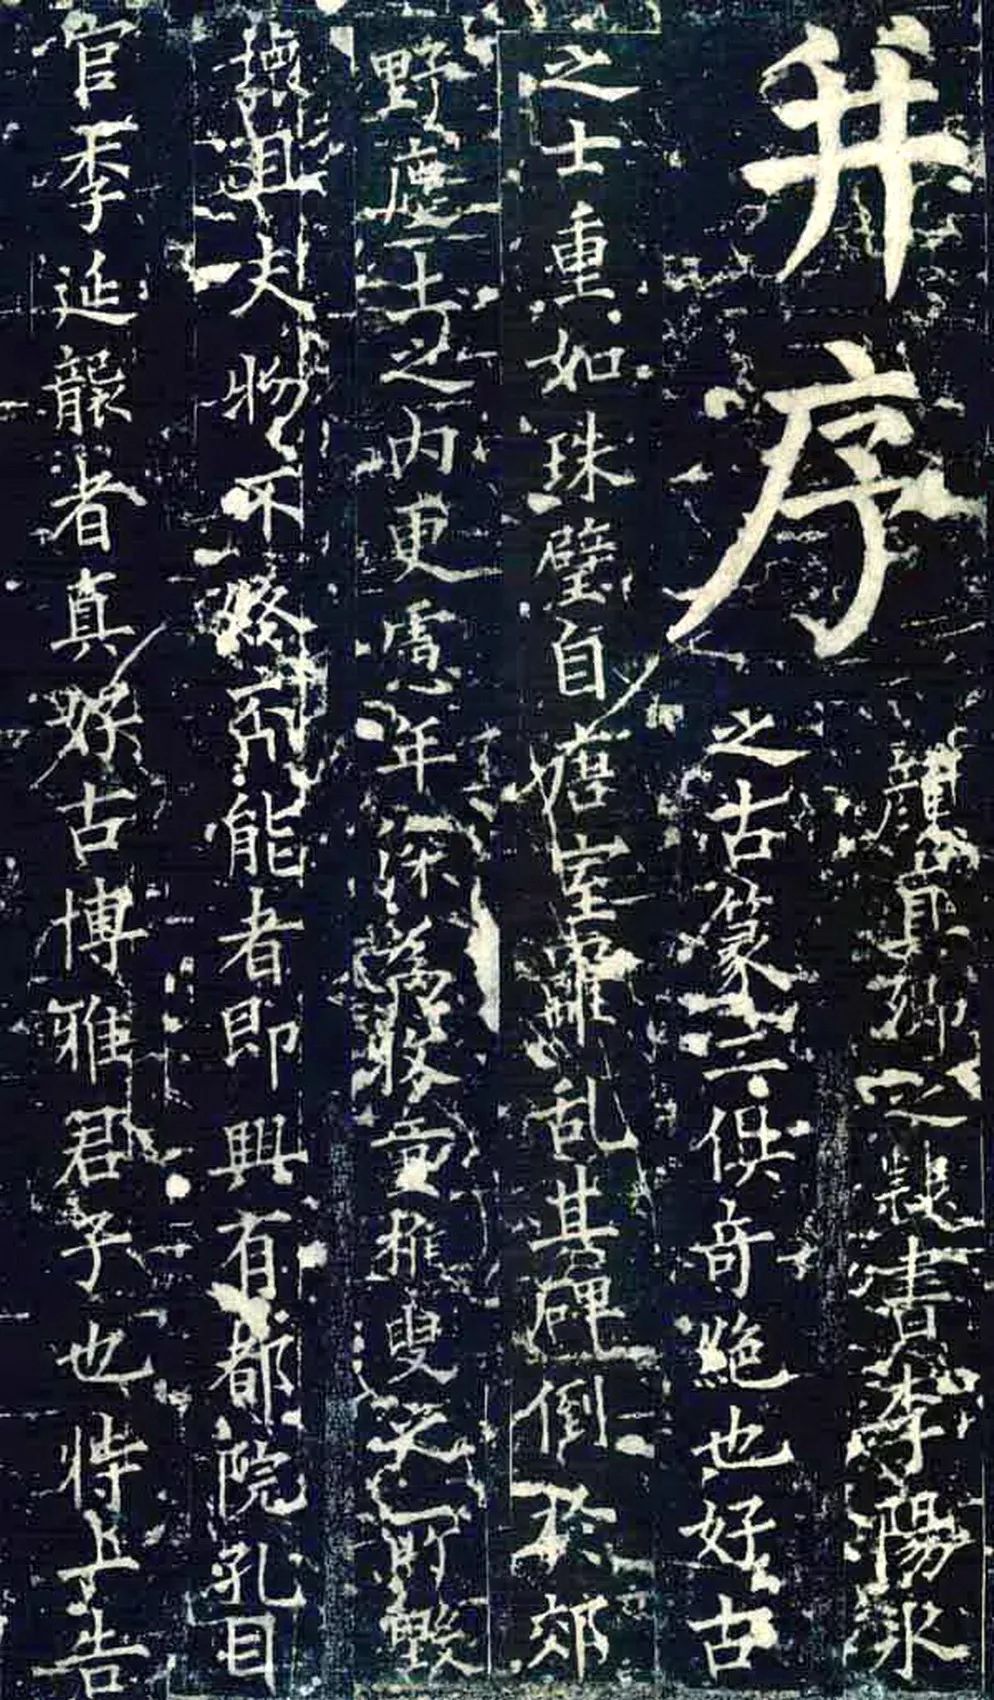 并序
顏真卿之隸書李陽冰
之古篆二俱奇絕也好古
之士重如珠璧自唐室離乱其碑倒於郊
野塵土之內更慮年深為牧童樵叟之所毀
壞且夫物不終否能者即興有都院孔目
官李延襲者真娛古博雅君子也特上告